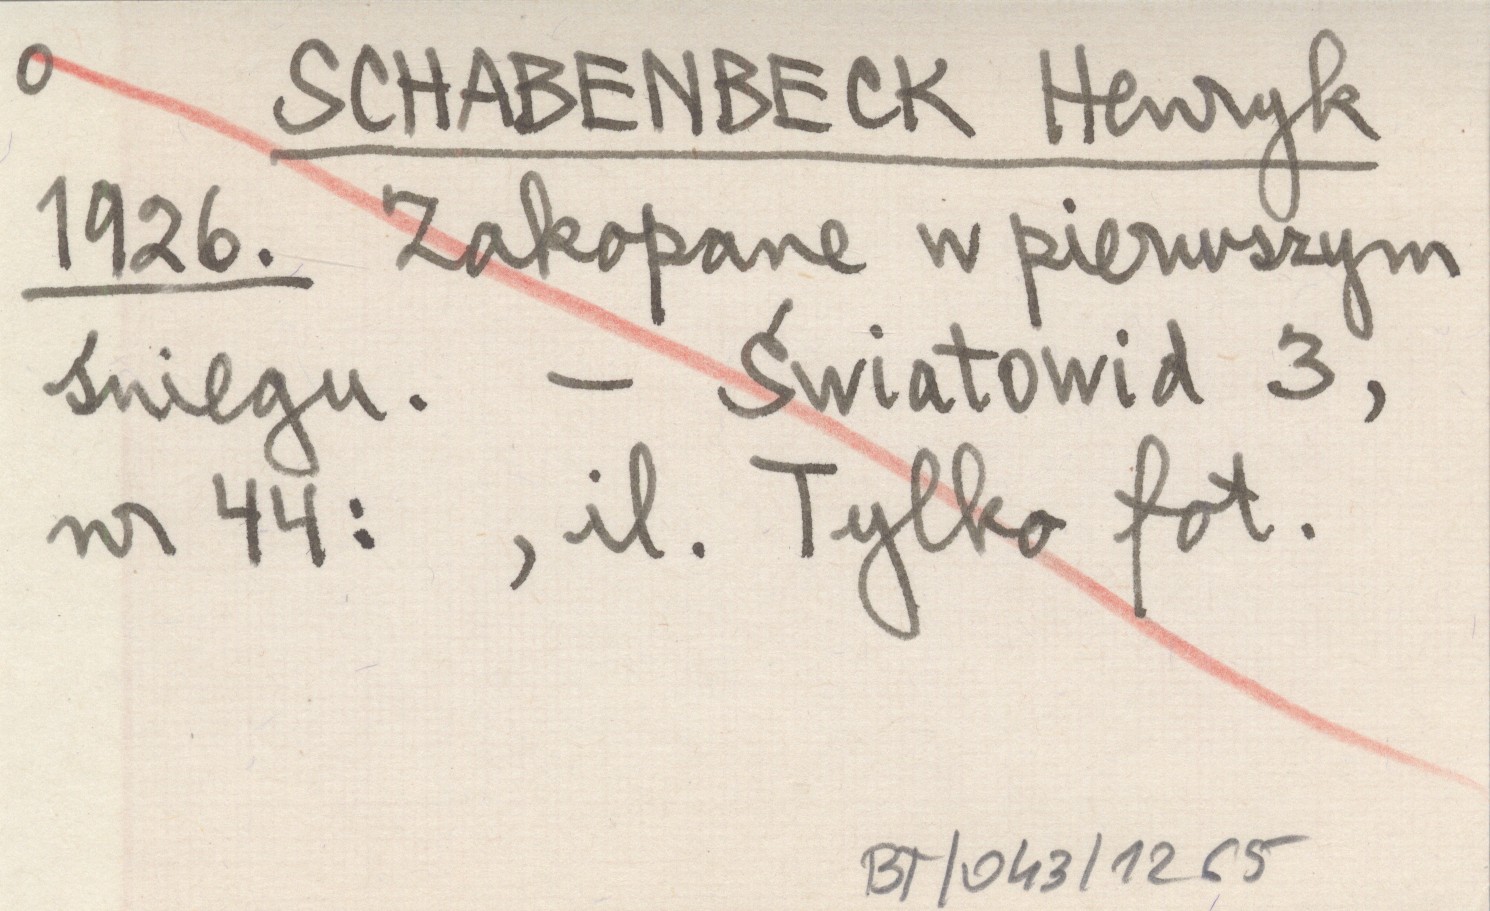 o SCHABENBECK Henryk
1926. Zakopane w pierwszym
śniegu. – Światowid 3,
nr 44: , il. Tylko fot.
BT/043/1265